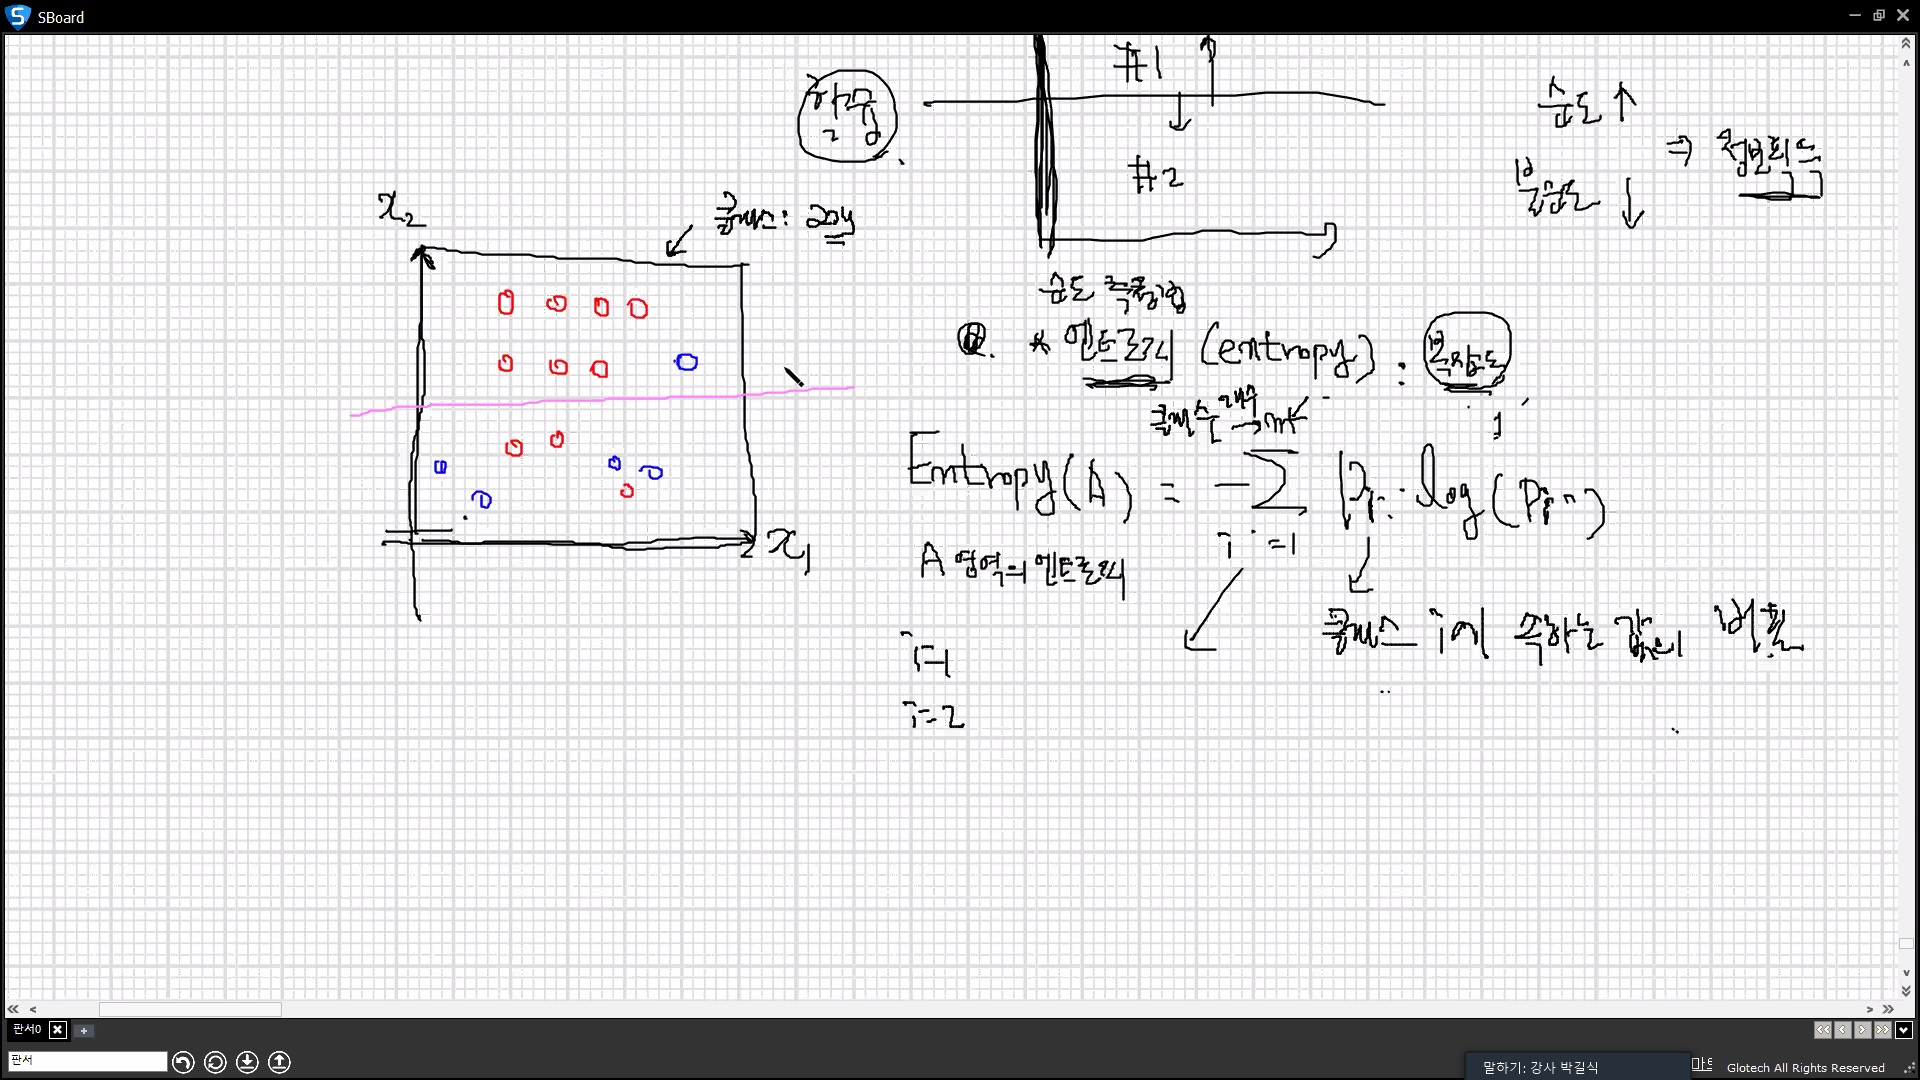 SBoard
#1
#2
순도 ↑
불순도 ↓
⇒
x₂
클래스: 2개
순도 측정방법
* 엔트로피 (entropy) : 복잡도
클래스 개수 → m
Entropy(A) = -∑ Pᵢ · log(Pᵢ)
i = 1
x₁
A 영역의 엔트로피
클래스 i에 속하는 값의 비율
i=1
i=2
판서0
판서
말하기: 강사 박길식
Glotech All Rights Reserved